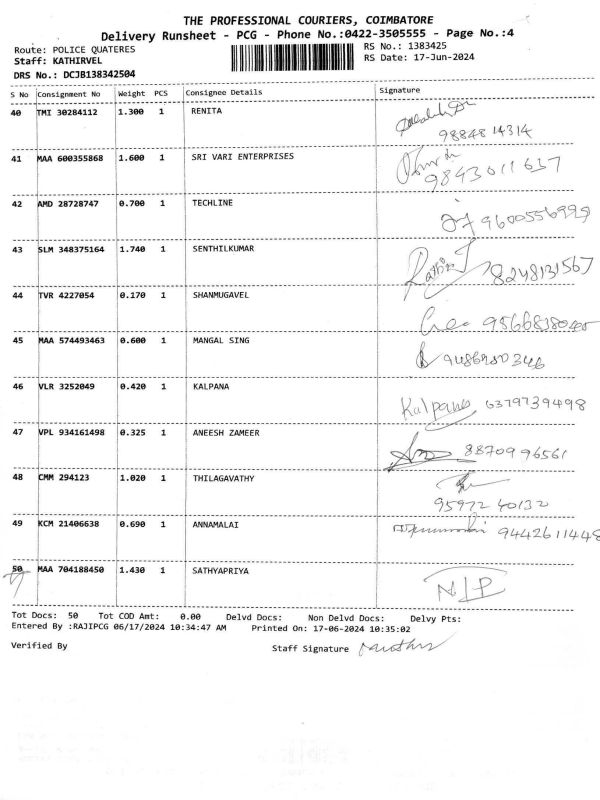 THE PROFESSIONAL COURIERS, COIMBATORE
Delivery Runsheet - PCG - Phone No.:0422-3505555 - Page No.:4
Route: POLICE QUATERES
RS No.: 1383425
Staff: KATHIRVEL
RS Date: 17-Jun-2024
DRS No.: DCJB138342504
S No Consignment No Weight PCS Consignee Details Signature
40 TMI 30284112 1.300 1 RENITA
9884814314
41 MAA 600355868 1.600 1 SRI VARI ENTERPRISES
9843011637
42 AMD 28728747 0.700 1 TECHLINE
9600556999
43 SLM 348375164 1.740 1 SENTHILKUMAR
8248131567
44 TVR 4227054 0.170 1 SHANMUGAVEL
45 MAA 574493463 0.600 1 MANGAL SING
46 VLR 3252049 0.420 1 KALPANA
Kalpana 6379739498
47 VPL 934161498 0.325 1 ANEESH ZAMEER
8870996561
48 CMM 294123 1.020 1 THILAGAVATHY
9597240132
49 KCM 21406638 0.690 1 ANNAMALAI
9442611448
50 MAA 704188450 1.430 1 SATHYAPRIYA
N/P
Tot Docs: 50 Tot COD Amt: 0.00 Delvd Docs: Non Delvd Docs: Delvy Pts:
Entered By :RAJIPCG 06/17/2024 10:34:47 AM Printed On: 17-06-2024 10:35:02
Verified By Staff Signature